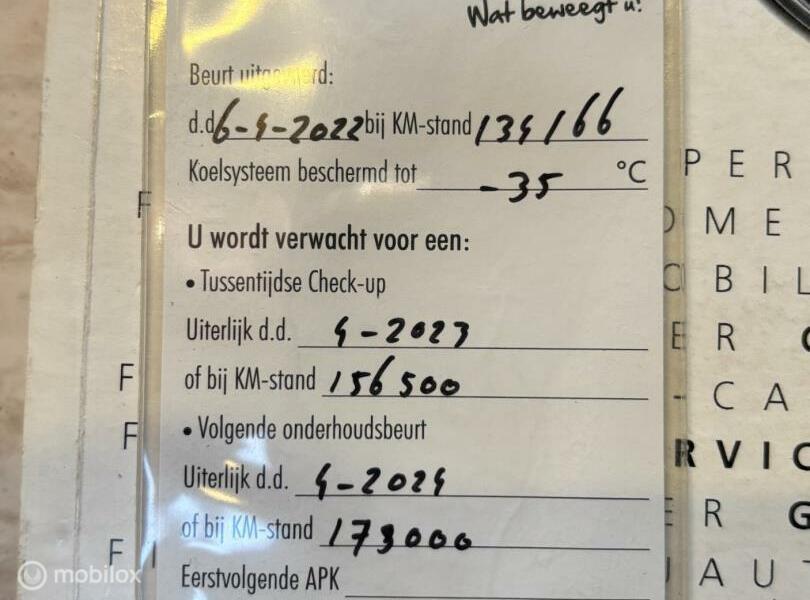 Wat beweegt u!
Beurt uitgevoerd:
d.d. 6-4-2022 bij KM-stand 134166
Koelsysteem beschermd tot -35 °C
U wordt verwacht voor een:
• Tussentijdse Check-up
Uiterlijk d.d. 4-2023
of bij KM-stand 156500
• Volgende onderhoudsbeurt
Uiterlijk d.d. 4-2024
of bij KM-stand 173000
Eerstvolgende APK
F
F
F
F
P E R
O M E
O B I L
E R
- C A
R V I C
E R G
U A U T
mobilox